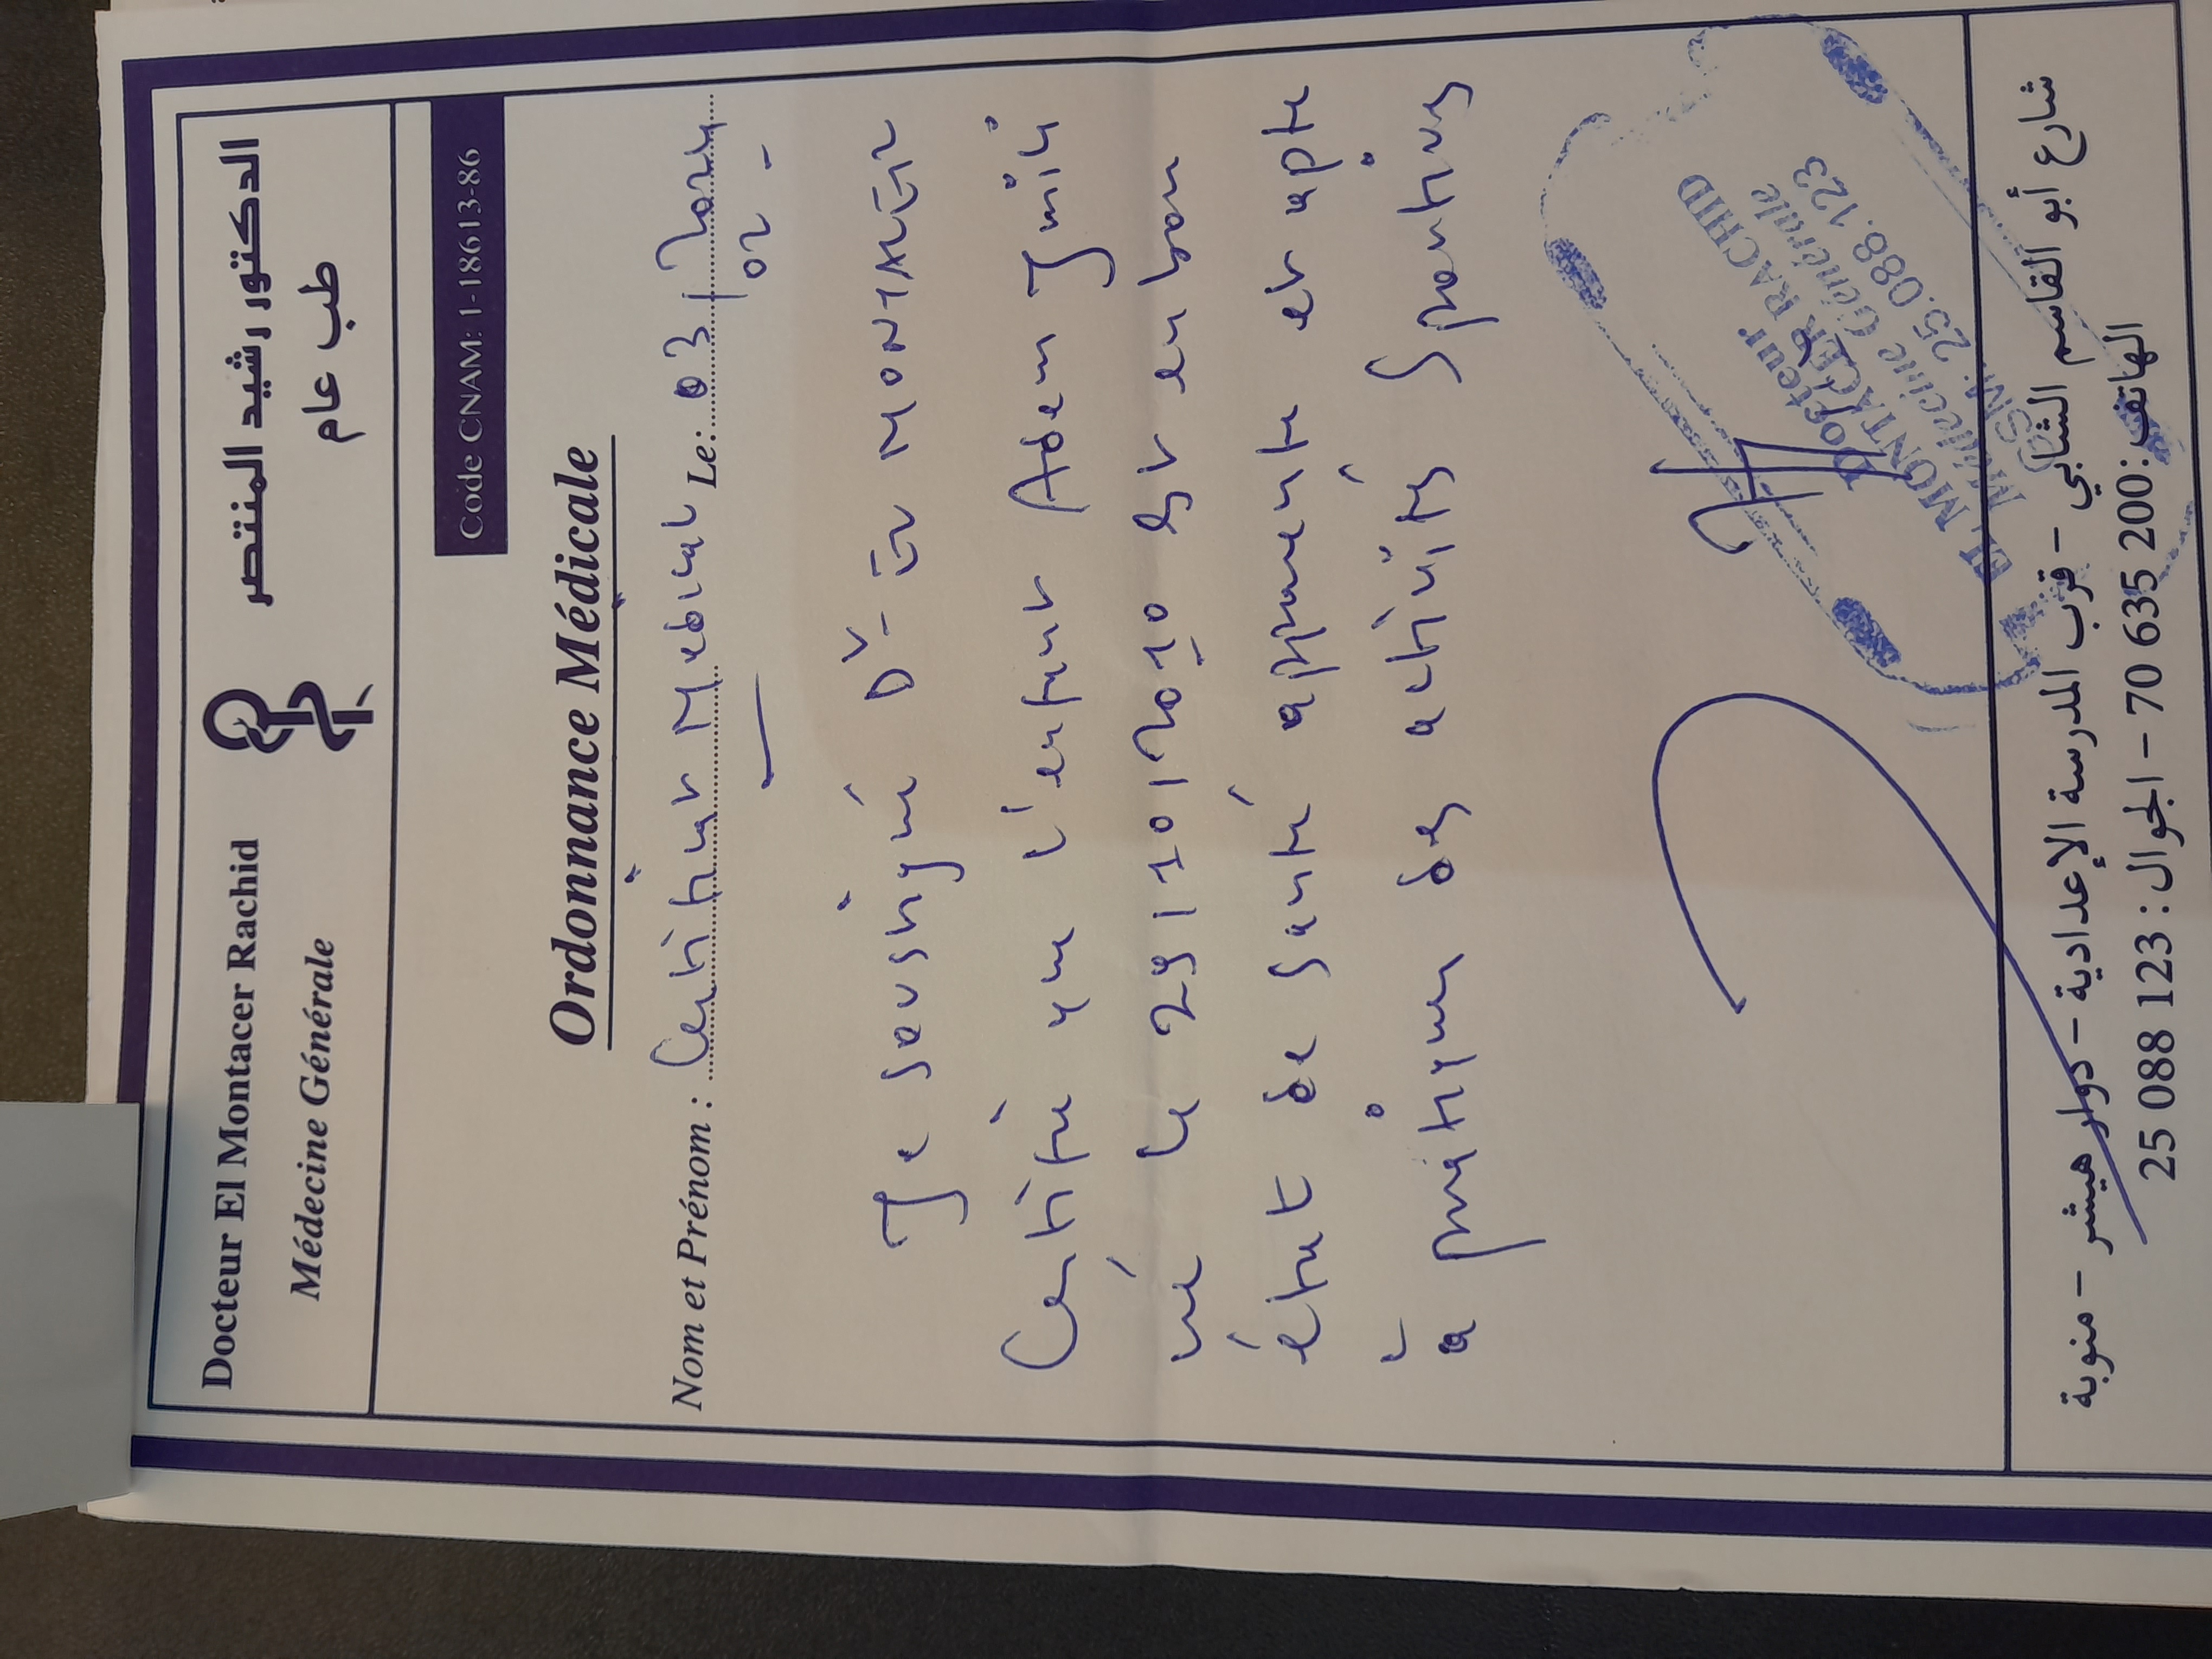 Docteur El Montacer Rachid
Médecine Générale
الدكتور رشيد المنتصر
طب عام
Code CNAM: 1-18613-86
Ordonnance Médicale
Nom et Prénom : Certificat Médical Le: 03
02
Je soussigné Dr EL MONTACER
Certifie que l'enfant Adem Jmili
né le 29/10/2010 est en bon
état de santé apparente et apte
à pratiquer des activités sportives
Docteur
EL MONTACER RACHID
Médecine Générale
GSM: 25.088.123
شارع أبو القاسم الشابي - قرب المدرسة الإعدادية - دوار هيشر - منوبة
الهاتف: 200 635 70 - الجوال: 123 088 25